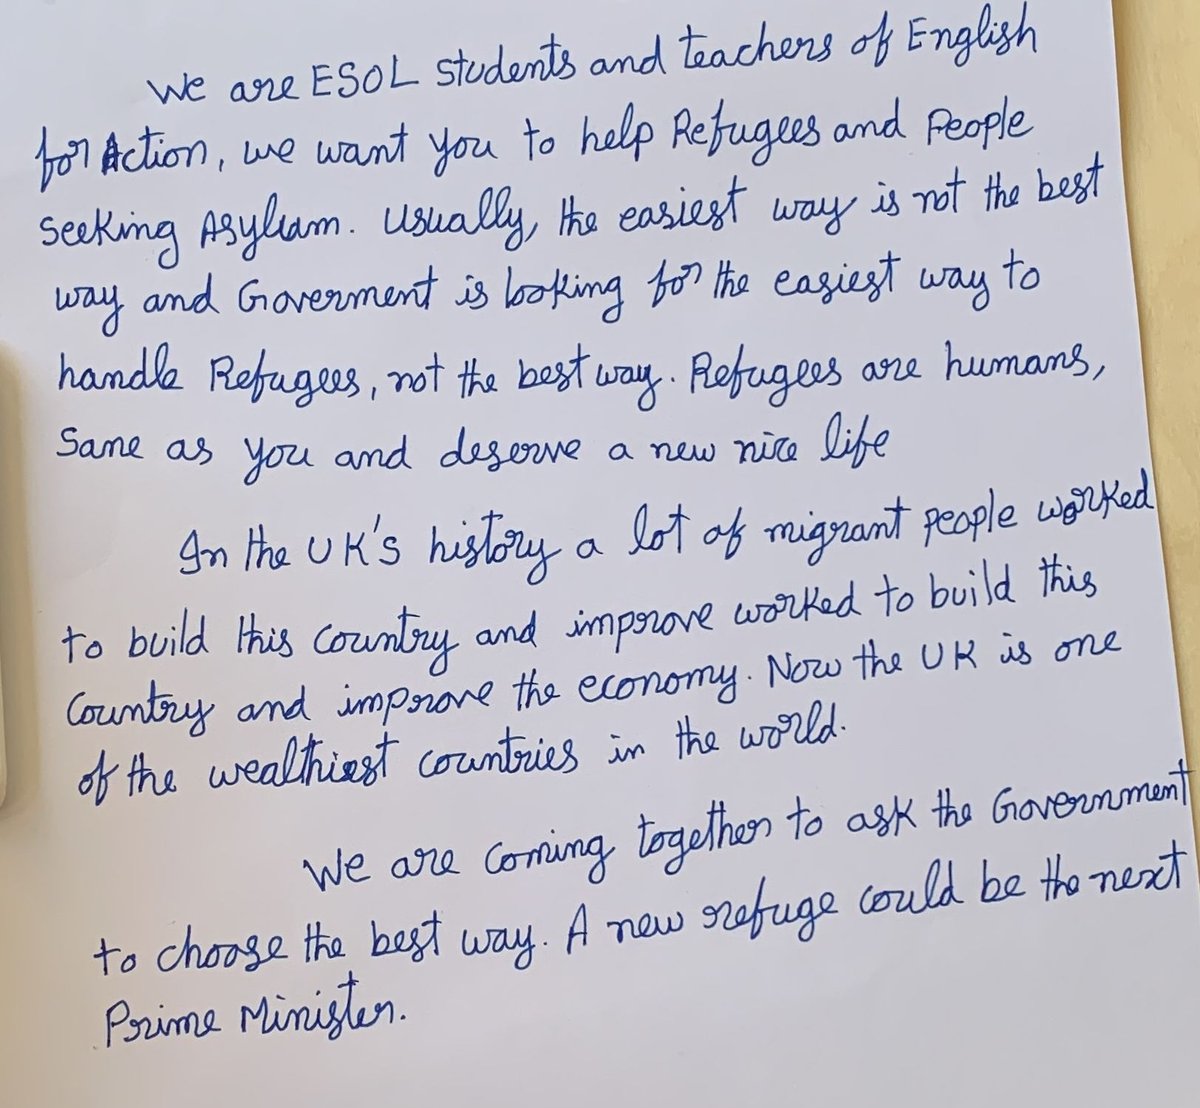 We are ESOL students and teachers of English
for Action, we want you to help Refugees and People
Seeking Asylum. Usually, the easiest way is not the best
way and Goverment is looking for the easiest way to
handle Refugees, not the best way. Refugees are humans,
Same as you and deserve a new nice life
In the UK's history a lot of migrant people worked
to build this Country and improve worked to build this
Country and improve the economy. Now the UK is one
of the wealthiest countries in the world.
We are coming together to ask the Government
to choose the best way. A new refuge could be the next
Prime Minister.